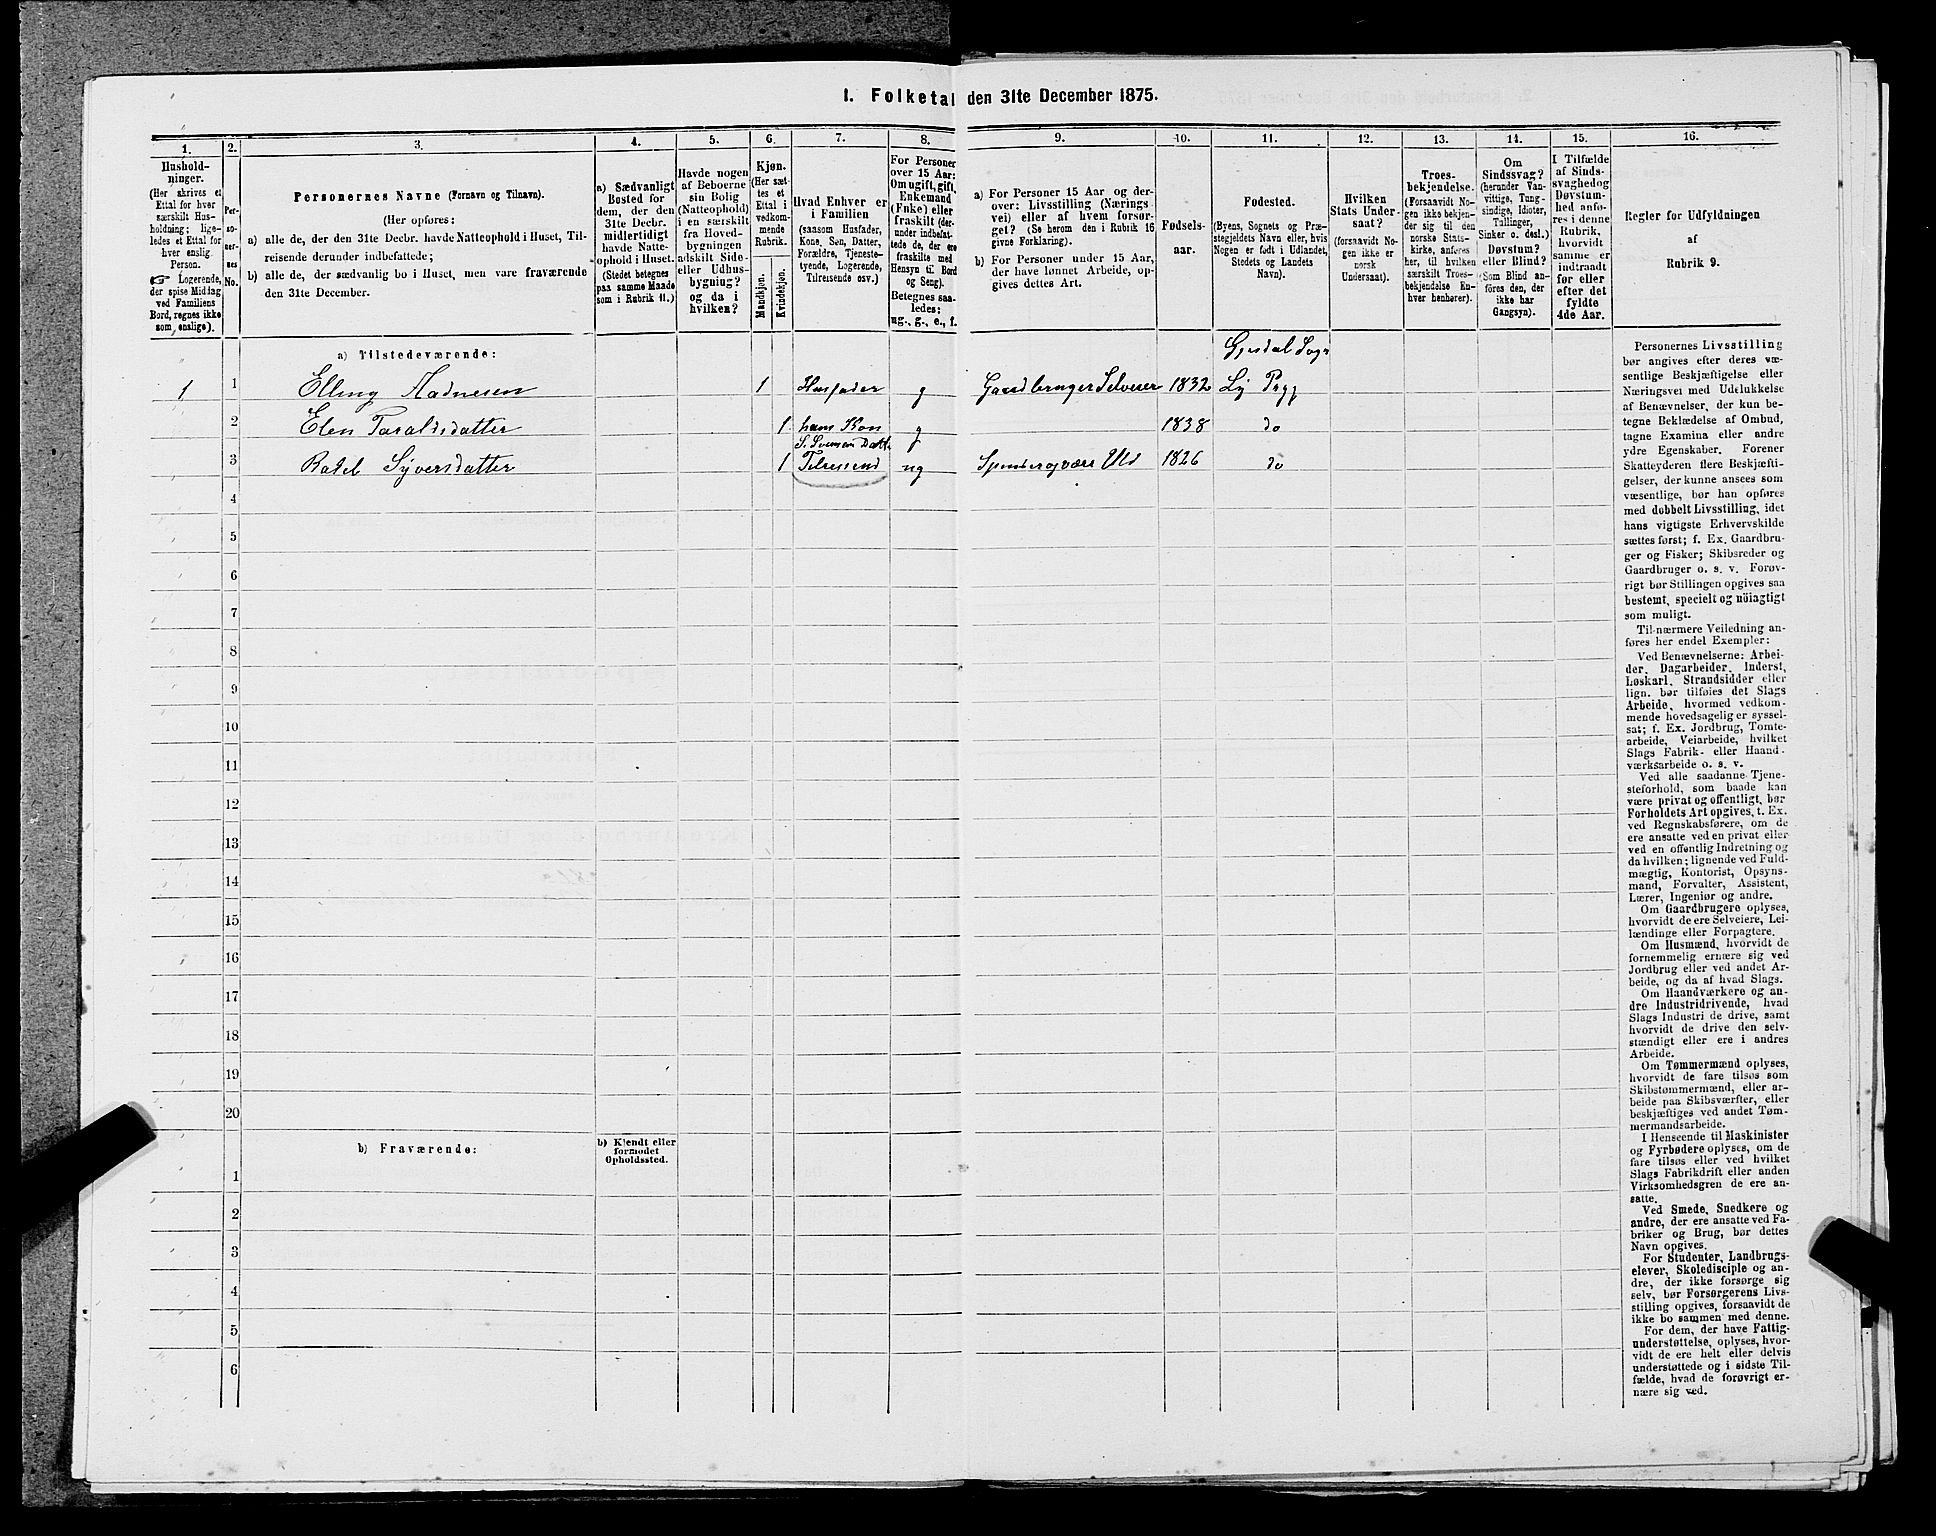 1. Folketal den 31te December 1875.
1.
Hushold-
ninger.
(Her skrives et
Ettal for hver
særskilt Hus-
holdning; lige-
ledes et Ettal for
hver enslig.
Person.
☞ Logerende,
der spise Middag
ved Familiens
Bord, regnes ikke
som enslige).
2.
Per-
so-
ner-
nes
No.
3.
Personernes Navne (Fornavn og Tilnavn).
(Her opføres:
a) alle de, der den 31te Decbr. havde Natteophold i Huset, Til-
reisende derunder indbefattede;
b) alle de, der sædvanlig bo i Huset, men vare fraværende
den 31te December.
4.
a) Sædvanligt
Bosted for
dem, der den
31te Decbr.
midlertidigt
havde Natte-
ophold i Huset.
(Stedet betegnes
paa samme Maade
som i Rubrik 11.)
5.
Havde nogen
af Beboerne
sin Bolig
(Natteophold)
i en særskilt
fra Hoved-
bygningen
adskilt Side-
eller Udhus-
bygning?
og da i
hvilken?
6.
Kjøn.
(Her sæt-
tes et
Ettal i
vedkom-
mende
Rubrik.
Mandkjøn.
Kvindekjøn.
7.
Hvad Enhver er
i Familien
(saasom Husfader,
Kone, Søn, Datter,
Forældre, Tjeneste-
tyende, Logerende,
Tilreisende osv.)
8.
For Personer
over 15 Aar:
Om ugift, gift,
Enkemand
(Enke) eller
fraskilt (der-
under indbefat-
tede de, der ere
fraskilte med
Hensyn til Bord
og Seng).
Betegnes saa-
ledes:
ug., g., e., f.
9.
a) For Personer 15 Aar og der-
over: Livsstilling (Nærings
vei) eller af hvem forsør-
get? (Se herom den i Rubrik 16
givne Forklaring).
b) For Personer under 15 Aar,
der have lønnet Arbeide, op-
gives dettes Art.
10.
Fødsels-
aar.
11.
Fødested.
(Byens, Sognets og Præ-
stegjeldets Navn eller, hvis
Nogen er født i Udlandet,
Stedets og Landets
Navn).
12.
Hvilken
Stats Under-
saat?
(forsaavidt No-
gen ikke er
norsk
Undersaat).
13.
Troes-
bekjendelse.
(Forsaavidt No-
gen ikke bekjen-
der sig til den
norske Stats-
kirke, anføres
her, til hvilken
særskilt Troes-
bekjendelse En-
hver henhører).
14.
Om
Sindssvag?
(herunder Van-
vittige, Tung-
sindige, Idioter,
Tullinger,
Sinker o. desl.)
Døvstum?
eller Blind?
(Som Blind an-
føres den, der
ikke har
Gangsyn).
15.
I Tilfælde
af Sinds-
svaghed og
Døvstum-
hed anfø-
res i denne
Rubrik,
hvorvidt
samme er
indtraadt
før eller
efter det
fyldte
4de Aar.
16.
Regler for Udfyldningen
af
Rubrik 9.
a) Tilstedeværende:
Gjesdal Sogn
1 1 Elling Hadnesen 1 Husfader g Gaardbruger Selveier 1832 Ly Prgj
2 Elen Taraldsdatter 1 hans Kon g 1838 do
3 Rakel Syversdatter 1 Tilreisend ug Spinder og væve Uld 1826 do
4
5
6
7
8
9
10
11
12
13
14
15
16
17
18
19
20
b) Fraværende:
b) Kjendt eller
formodet
Opholdssted.
1
2
3
4
5
6
Personernes Livsstilling
bør angives efter deres væ-
sentlige Beskjæftigelse eller
Næringsvei med Udelukkelse
af Benævnelser, der kun be-
tegne Beklædelse af Ombud,
tagne Examina eller andre
ydre Egenskaber. Forener
Skatteyderen flere Beskjæfti-
gelser, der kunne ansees som
væsentlige, bør han opføres
med dobbelt Livsstilling, idet
hans vigtigste Erhvervskilde
sættes først; f. Ex. Gaardbru-
ger og Fisker; Skibsreder og
Gaardbruger o. s. v. Forøv-
rigt bør Stillingen opgives saa
bestemt, specielt og nöiagtigt
som muligt.
Til nærmere Veiledning an-
føres her endel Exempler:
Ved Benævnelserne: Arbei-
der, Dagarbeider, Inderst,
Løskarl, Strandsidder eller
lign. bør tilføies det Slags
Arbeide, hvormed vedkom-
mende hovedsagelig er syssel-
sat; f. Ex. Jordbrug, Tomte-
arbeide, Veiarbeide, hvilket
Slags Fabrik- eller Haand-
værksarbeide o. s. v.
Ved alle saadanne Tjene-
steforhold, som baade kan
være privat og offentligt, bør
Forholdets Art opgives, t. Ex.
ved Regnskabsførere, om de
ere ansatte ved en privat eller
ved en offentlig Indretning og
da hvilken; lignende ved Fuld-
mægtig, Kontorist, Opsyns-
mand, Forvalter, Assistent,
Lærer, Ingeniør og andre.
Om Gaardbrugere oplyses,
hvorvidt de ere Selveiere, Lei-
lændinge eller Forpagtere.
Om Husmænd, hvorvidt de
fornemmelig ernære sig ved
Jordbrug eller ved andet Ar-
beide, og da af hvad Slags.
Om Haandværkere og an-
dre Industridrivende, hvad
Slags Industri de drive, samt
hvorvidt de drive den selv-
stændigt eller ere i andres
Arbeide.
Om Tømmermænd oplyses,
hvorvidt de fare tilsøs som
Skibstømmermænd, eller ar-
beide paa Skibsværfter, eller
beskjæftiges ved andet Tøm-
mermandsarbeide.
I Henseende til Maskinister
og Fyrbødere oplyses, om de
fare tilsøs eller ved hvilket
Slags Fabrikdrift eller anden
Virksomhedsgren de ere an-
satte.
Ved Smede, Snedkere og
andre, der ere ansatte ved Fa-
briker og Brug, bør dettes
Navn opgives.
For Studenter, Landbrugs-
elever, Skoledisciple og an-
dre, der ikke forsørge sig
selv, bør Forsørgerens Livs-
stilling opgives, forsaavidt de
ikke bo sammen med denne.
For dem, der have Fattig-
understøttelse, oplyses, hvor-
vidt de ere helt eller delvis
understøttede og i sidste Til-
fælde, hvad de forøvrigt er-
nære sig ved.